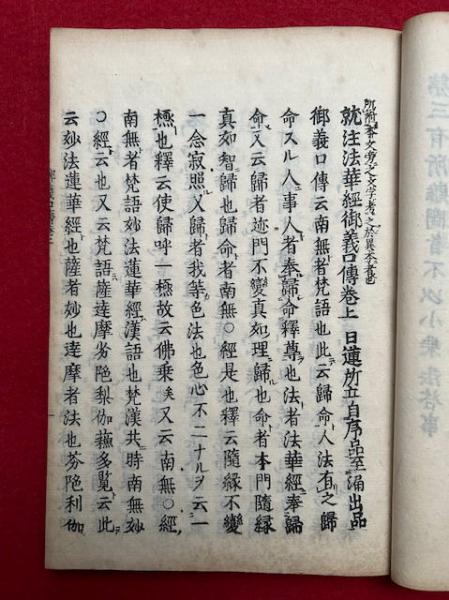 就注法華經御義口傳卷上 日蓮所立自序品至涌出品
御義口傳云南無者梵語也此云歸命人法有之歸
命スル人事人者奉歸命釋尊也法者法華經奉歸
命又云歸者迹門不變真如理歸也命者本門隨緣
真如智歸也歸命者南無○經是也釋云隨緣不變
一念寂照又歸者我等色法也色心不二ナルヲ云一
極也釋云使歸呼一極故云佛乘矣又云南無○經
南無者梵語妙法蓮華經漢語也梵漢共時南無妙
○經云也又云梵語薩達摩芬陁梨伽蘇多覧云此
云妙法蓮華經也薩者妙也達摩者法也芬陁利伽